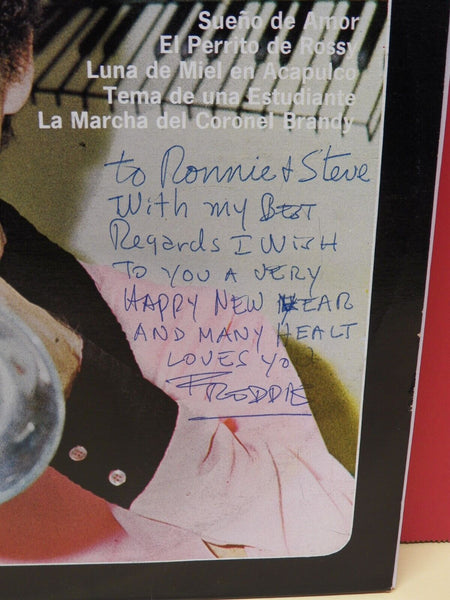 Sueño de Amor
El Perrito de Rossy
Luna de Miel en Acapulco
Tema de una Estudiante
La Marcha del Coronel Brandy
to Ronnie & Steve
With my BEST
Regards I WISH
TO YOU A VERY
HAPPY NEW YEAR
AND MANY HEALT
LOVES YOU
FREDDIE